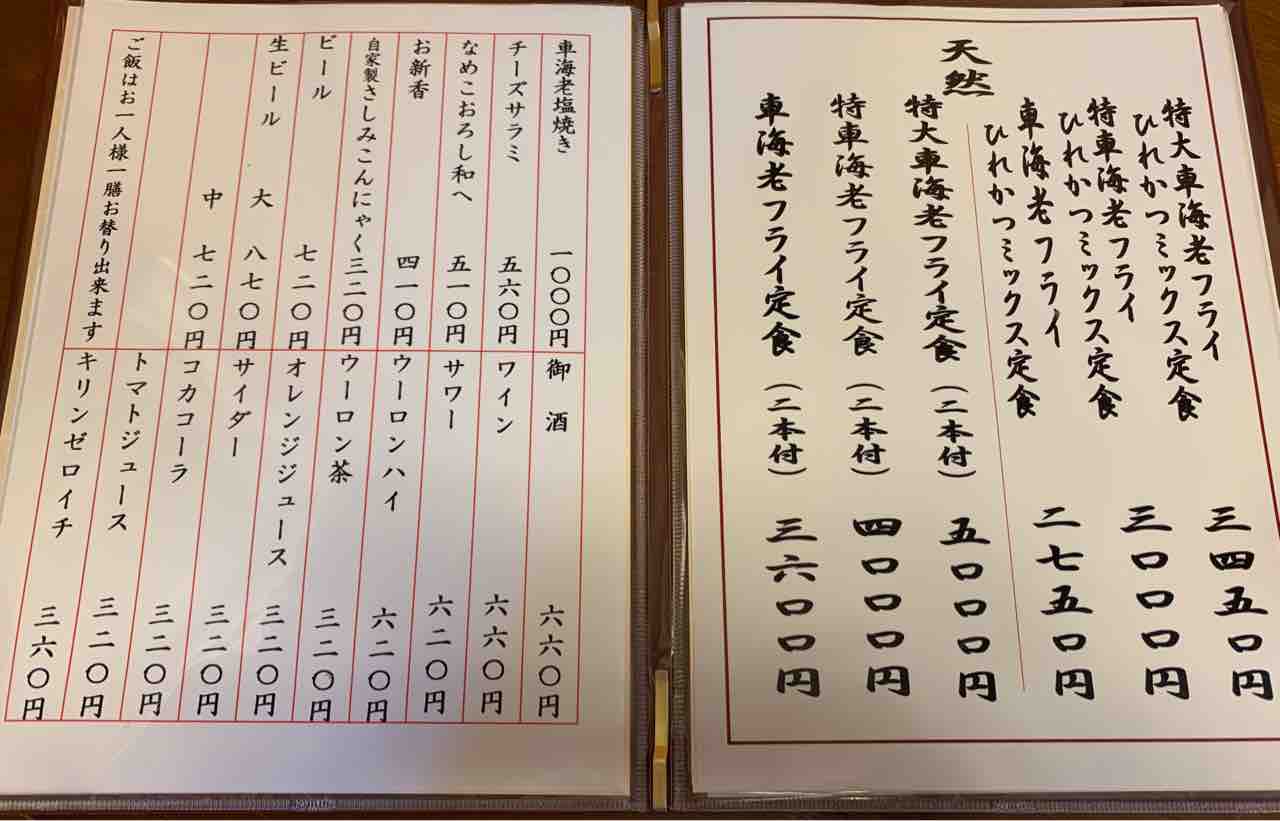 天然
特大車海老フライ
ひれかつミックス定食 三四五〇円
特車海老フライ
ひれかつミックス定食 三〇〇〇円
車海老フライ
ひれかつミックス定食 二七五〇円
特大車海老フライ定食(二本付) 五〇〇〇円
特車海老フライ定食(二本付) 四〇〇〇円
車海老フライ定食(二本付) 三六〇〇円
車海老塩焼き 一〇〇〇円
チーズサラミ 五六〇円
なめこおろし和へ 五一〇円
お新香 四一〇円
自家製さしみこんにゃく 三二〇円
ビール 七二〇円
生ビール 大 八七〇円
中 七二〇円
ご飯はお一人様一膳お替り出来ます
御酒 六六〇円
ワイン 六六〇円
サワー 六二〇円
ウーロンハイ 六二〇円
ウーロン茶 三二〇円
オレンジジュース 三二〇円
サイダー 三二〇円
コカコーラ 三二〇円
トマトジュース 三二〇円
キリンゼロイチ 三六〇円